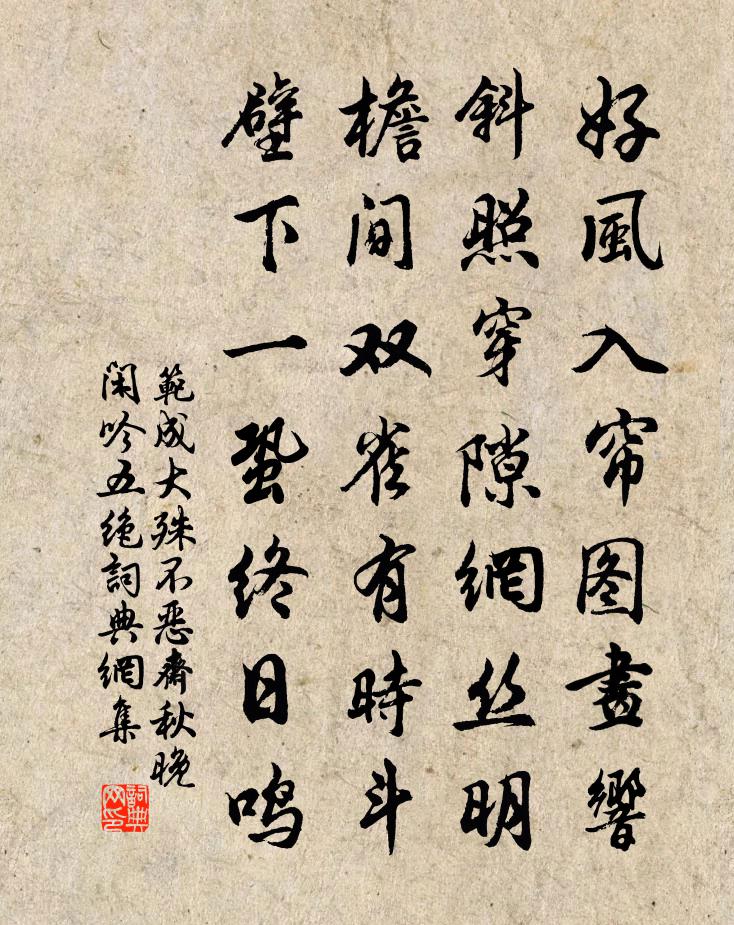 好風入帘图畫響
斜照穿隙網丝明
檐间双雀有時斗
壁下一蛩终日鸣
範成大殊不恶齋秋晚
闲吟五绝詞典網集
詞典
网印